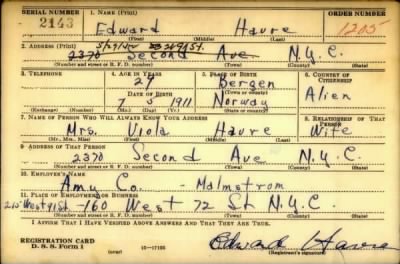 SERIAL NUMBER 1. NAME (Print) ORDER NUMBER
2143 Edward Havre 1205
(First) (Middle) (Last)
2. ADDRESS (Print)
2370 Second Ave N.Y.C.
(Number and street or R. F. D. number) (Town) (County) (State)
3. TELEPHONE 4. AGE IN YEARS 5. PLACE OF BIRTH 6. COUNTRY OF CITIZENSHIP
29 Bergen
DATE OF BIRTH (Town or county) Alien
7 5 1911 Norway
(Exchange) (Number) (Mo.) (Day) (Yr.) (State or country)
7. NAME OF PERSON WHO WILL ALWAYS KNOW YOUR ADDRESS 8. RELATIONSHIP OF THAT PERSON
Mrs. Viola Havre Wife
(Mr., Mrs., Miss) (First) (Middle) (Last)
9. ADDRESS OF THAT PERSON
2370 Second Ave N.Y.C.
(Number and street or R. F. D. number) (Town) (County) (State)
10. EMPLOYER'S NAME
Amy Co. - Malmstrom
11. PLACE OF EMPLOYMENT OR BUSINESS
West 91 St 160 West 72 St N.Y.C.
(Number and street or R. F. D. number) (Town) (County) (State)
I AFFIRM THAT I HAVE VERIFIED ABOVE ANSWERS AND THAT THEY ARE TRUE.
REGISTRATION CARD
D. S. S. Form 1 (over) 16-17105 Edward Havre
(Registrant's signature)